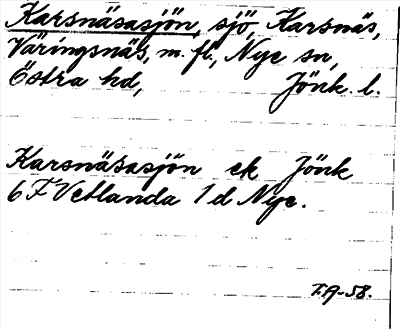 Karsnäsasjön, sjö, Karsnäs,
Väringsnäs, m. fl., Nye sn,
Östra hd, Jönk. l.
Karsnäsasjön ek Jönk
6 F Vetlanda 1 d Nye.
T.A-58.